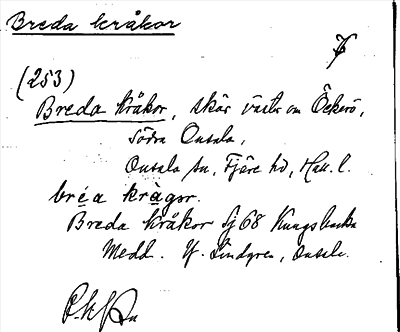 Breda kråkor
(253)
Breda kråkor, skär väster om Öckerö,
Södra Onsala,
Onsala sn, Fjäre hd, Hall. l.
bréa kràgər.
Breda kråkor Sj 68 Kungsbacka
Medd. Y. Lindgren, Onsala.